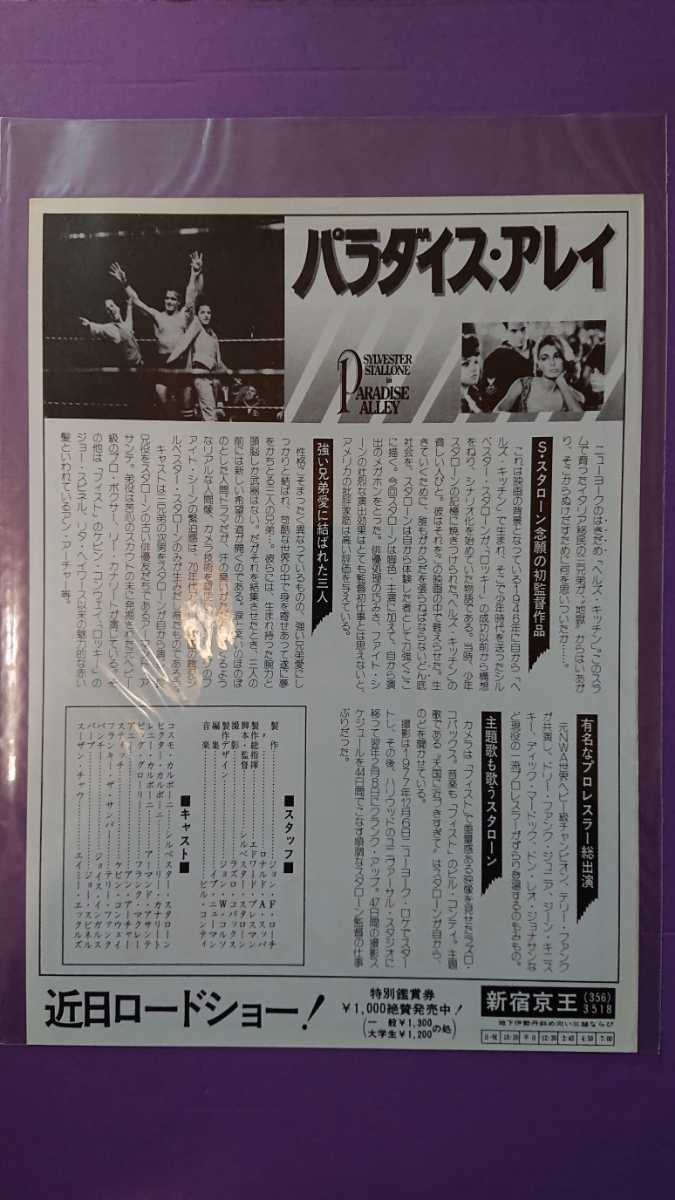 パラダイス・アレイ
SYLVESTER
STALLONE
in
PARADISE
ALLEY
ニューヨークのはきだめ“ヘルズ・キッチン”。このスラ
ムで育ったイタリア移民の三兄弟が、“地獄”からはいあが
り、そこからぬけだすために何を思いついたか……。
S・スタローン念願の初監督作品
これは映画の背景となっている1946年に自から“ヘ
ルズ・キッチン”で生まれ、そこで少年時代を送ったシル
ベスター・スタローンが「ロッキー」の成功以前から構想
をねり、シナリオ化を始めていた物語である。当時、少年
スタローンの記憶に焼きつけられた“ヘルズ・キッチン”の
貧しい人びと。彼はそれをこの映画の中で甦えらせた。生
きていくために、誰もがからだを張らねばならないどん底
社会を、スタローンは自から体験した者として力強くここ
に描く。今回スタローンは脚色、主演に加えて、自から演
出のメガホンをとった。俳優処理の巧みさ、ファイト・シ
ーンの壮烈な演出効果はとても監督初仕事とは思えないと、
アメリカの批評家筋は高い評価を与えている。
強い兄弟愛に結ばれた三人
性格こそまったく異なっているものの、強い兄弟愛にし
っかりと結ばれ、苛酷な世界の中で身を寄せあって遂に夢
をかちとる三人の兄弟…。彼らには、生まれ持った腕力と
頭脳しか武器はない。だがそれを結集させたとき、三人の
前には新しい希望の道が開くのである。涙と笑いのほのぼ
のとした人間ドラマだが、汗の臭い
なリアルな人間像、カメラ技術を
ァイト・シーンの緊迫感は、70年代の
ルベスター・スタローンのみが生み
キャストは三兄弟の次男をスタローンが自から演じ、
兄役をスタローンの古い俳優友だちであるアーマンド・ア
サンテ。弟役は苦心のスカウトの末に発掘されたヘビー
級のプロ・ボクサー、リー・カナリートが演じている。そ
の他は「フィスト」のケビン・コンウェイ、「ロッキー」の
ジョー・スピネル、リタ・ヘイワース以来の魅力的な赤い
髪といわれているアン・アーチャー等。
有名なプロレスラー総出演
元NWA世界ヘビー級チャンピオン、テリー・ファンク
が共演し、ドリー・ファンク・ジュニア、ジーン・キニス
キー、ディック・マードック、ドン・レオ・ジョナサンな
ど現役の一流プロレスラーがずらり登場するのもみもの。
主題歌も歌うスタローン
カメラは「フィスト」で重量感ある映像を見せたラズロ・
コバックス。音楽も「フィスト」のビル・コンティ。主題
歌である“天国に近づきすぎて”はスタローンが自から、
のどを聞かせている。
撮影は1977年12月6日ニューヨーク・ロケでスター
トし、その後、ハリウッドのユニヴァーサル・スタジオに
移って翌年2月8日にクランク・アップ。47日間の撮影ス
ケジュールを44日間でこなす順調なスタローン監督の仕事
ぶりだった。
■スタッフ■
製作………ジョン・F・ローチ
ロナルド・A・スッパ
製作総指揮………エドワード・プレスマン
脚本・監督………シルベスター・スタローン
撮影………ラズロ・コバックス
製作デザイン………ジョン・W・コルソ
編集………イブ・ニューマン
音楽………ビル・コンティ
■キャスト■
コスモ・カルボーニ………シルベスター・スタローン
ビクター・カルボーニ………リー・カナリート
レニー・カルボーニ………アーマンド・アサンテ
ビッグ・グローリー………フランク・マクレー
アニー………アン・アーチャー
スティッチ………ケビン・コンウェイ
フランキー・ザ・サンパー………テリー・ファンク
バンチー………ジョイス・インガルス
バープ………ジョー・スピネル
スーザン・チャウ………エイミー・エックルズ
近日ロードショー!
特別鑑賞券
¥1,000絶賛発売中!
(一般¥1,300
大学生¥1,200の処)
新宿京王
(356)
3518
地下伊勢丹斜め向い三越ならび